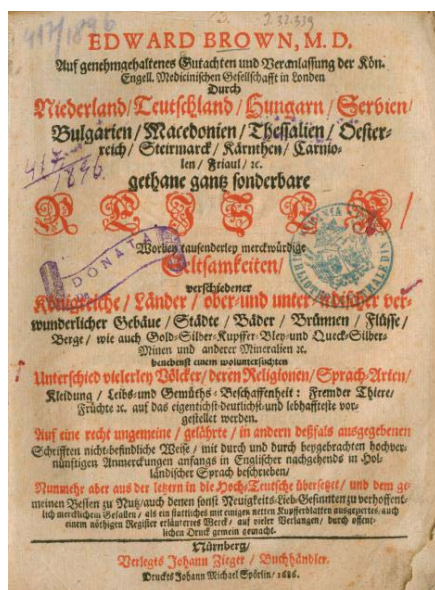 417/1896
J. 32.339
EDWARD BROWN, M. D.
Auf genehmgehaltenes Gutachten und Veranlassung der Kön.
Engell. Medicinischen Gesellschafft in Londen
Durch
Niederland/Teutschland/Hungarn/Servien/
Bulgarien/Macedonien/Thessalien/Oester-
reich/Steirmarck/Kärnthen/Carnio-
len/Friaul/ꝛc.
gethane gantz sonderbare
REISEN/
417/
1896.
Worbey tausenderley merckwürdige
DONATA
Seltsamkeiten/
verschiedener
Königreiche/Länder/ober-und unter-irdischer ver-
wunderlicher Gebäue/Städte/Bäder/Brünnen/Flüsse/
Berge/wie auch Gold-Silber-Kupffer-Bley-und Queck-Silber-
Minen und anderer Mineralien ꝛc.
benebenst einem woluntersuchten
Unterschied vielerley Völcker/deren Religionen/Sprach-Arten/
Kleidung/Leibs-und Gemüths-Beschaffenheit: Fremder Thiere/
Früchte ꝛc. auf das eigentlichst-deutlichst-und lebhaffteste vor-
gestellet werden.
Auf eine recht ungemeine/gelährte/in andern deßfals ausgegebenen
Schrifften nicht-befindliche Weise/mit durch und durch beygebrachten hochver-
nünftigen Anmerckungen anfangs in Englischer nachgehends in Hol-
ländischer Sprach beschrieben/
Nunmehr aber aus der letzern in die Hoch-Teutsche übersetzt/und dem ge-
meinen Besten zu Nutz/auch denen sonst Neuigkeits-Lieb-Gesinnten zu verhoffent-
lich mercklichem Gefallen/als ein stattliches mit einigen netten Kupferblatten ausgeziertes/auch
einem nöthigen Register erläutertes Werck/auf vieler Verlangen/durch öffent-
lichen Druck gemein gemacht.
Nürnberg/
Verlegts Johann Zieger/Buchhändler.
Druckts Johann Michael Spörlin/1686.